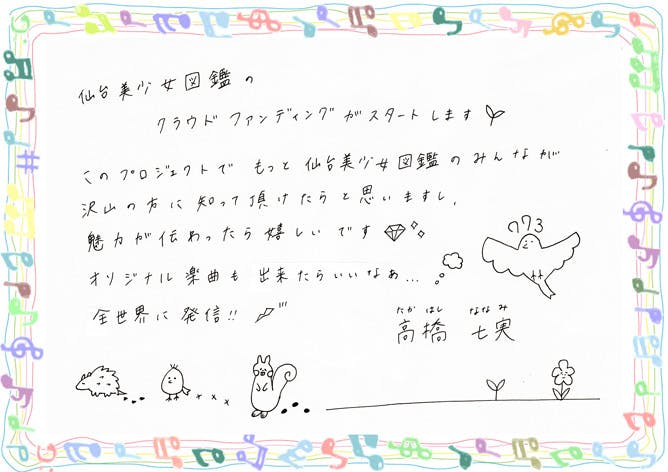 仙台美少女図鑑の
クラウドファンディングがスタートします
このプロジェクトで もっと 仙台美少女図鑑のみんなが
沢山の方に 知って頂けたらと思いますし、
魅力が伝わったら嬉しいです
オリジナル楽曲も 出来たらいいなぁ...
全世界に発信!!
773
たかはし ななみ
高橋 七実